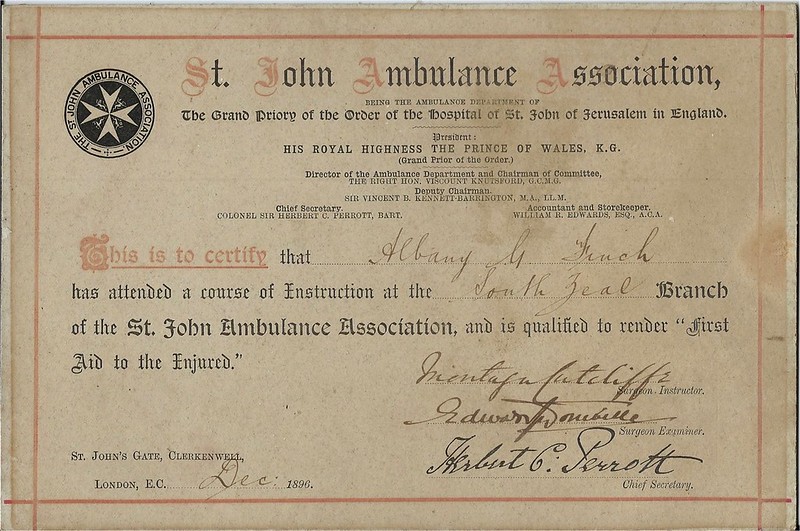 THE ST JOHN AMBULANCE ASSOCIATION
St. John Ambulance Association,
BEING THE AMBULANCE DEPARTMENT OF
The Grand Priory of the Order of the Hospital of St. John of Jerusalem in England.
President:
HIS ROYAL HIGHNESS THE PRINCE OF WALES, K.G.
(Grand Prior of the Order.)
Director of the Ambulance Department and Chairman of Committee,
THE RIGHT HON. VISCOUNT KNUTSFORD, G.C.M.G.
Deputy Chairman.
SIR VINCENT B. KENNETT-BARRINGTON, M.A., LL.M.
Chief Secretary. Accountant and Storekeeper.
COLONEL SIR HERBERT C. PERROTT, BART. WILLIAM R. EDWARDS, ESQ., A.C.A.
This is to certify that Albany G Finch
has attended a course of Instruction at the South Zeal Branch
of the St. John Ambulance Association, and is qualified to render "First
Aid to the Injured."
Montagu Cutcliffe
Surgeon Instructor.
Edward
Surgeon Examiner.
ST. JOHN'S GATE, CLERKENWELL, Herbert C. Perrott
LONDON, E.C. Dec: 1896. Chief Secretary.